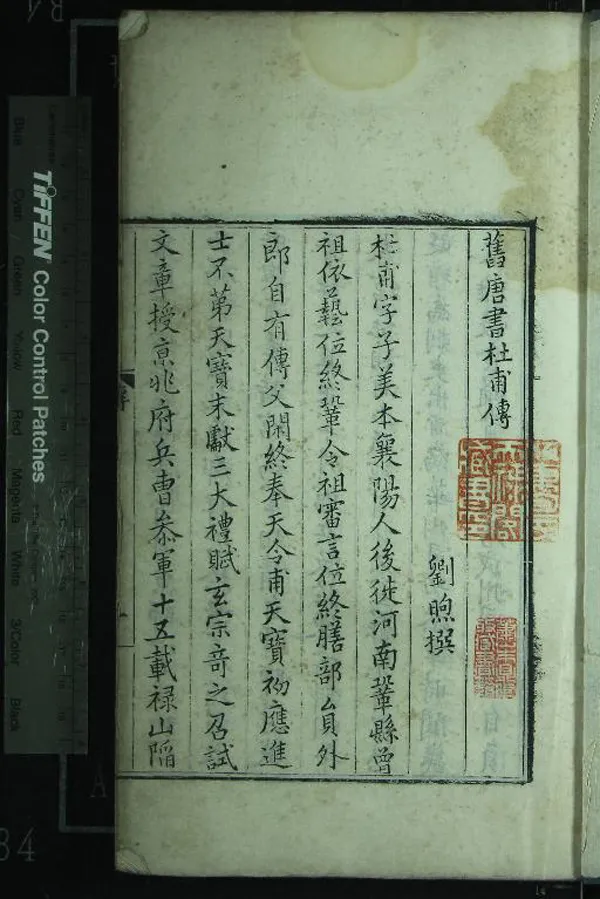 舊唐書杜甫傳
劉昫撰
杜甫字子美本襄陽人後徙河南鞏縣曾
祖依藝位終鞏令祖審言位終膳部貟外
郎自有傳父閑終奉天令甫天寶初應進
士不第天寶末獻三大禮賦玄宗竒之召試
文章授京兆府兵曹叅軍十五載禄山陷
TIFFEN Color Control Patches
Blue
Cyan
Green
Yellow
Red
Magenta
White
3/Color
Black